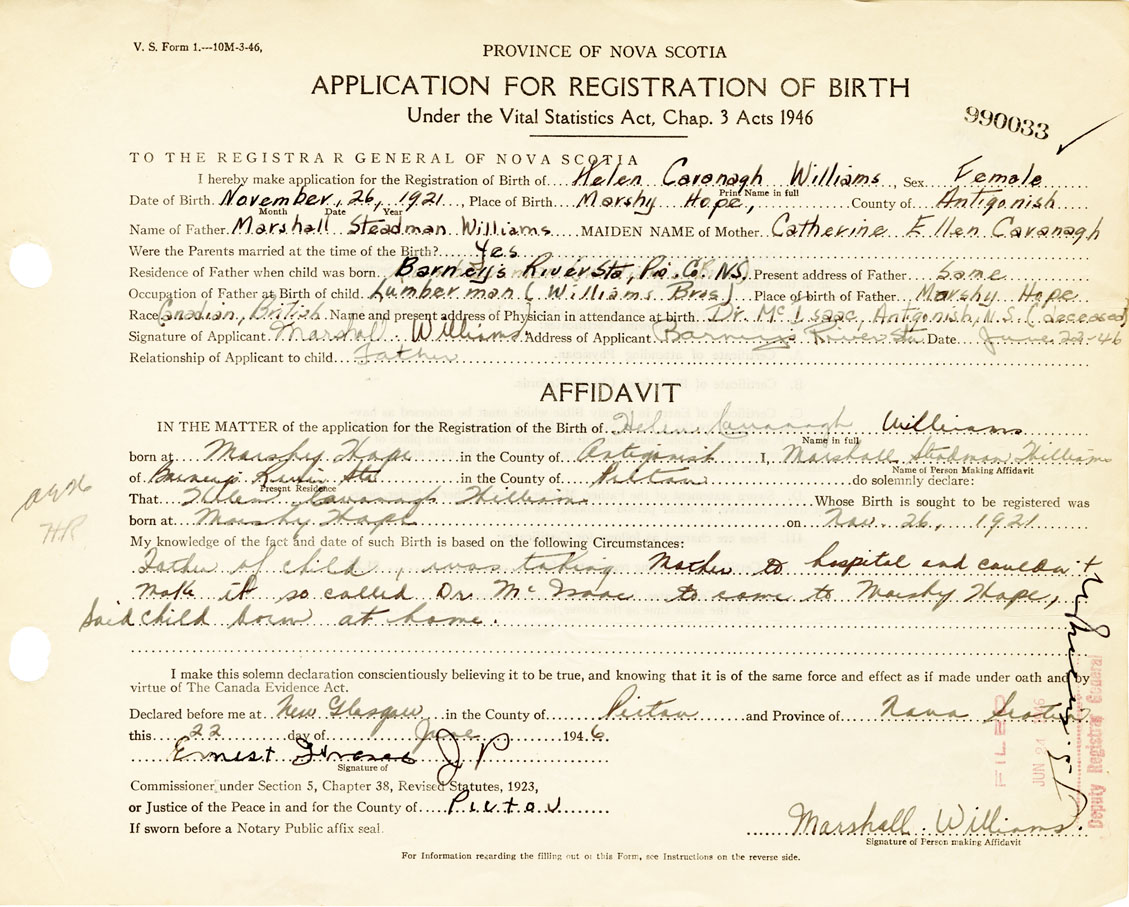 V. S. Form 1.---10M-3-46,
PROVINCE OF NOVA SCOTIA
APPLICATION FOR REGISTRATION OF BIRTH
Under the Vital Statistics Act, Chap. 3 Acts 1946
990033
TO THE REGISTRAR GENERAL OF NOVA SCOTIA
I hereby make application for the Registration of Birth of Helen Cavanagh Williams, Sex Female
Print Name in full
Date of Birth November, 26, 1921, Place of Birth Marshy Hope, County of Antigonish
Month Date Year
Name of Father Marshall Steadman Williams MAIDEN NAME of Mother Catherine Ellen Cavanagh
Were the Parents married at the time of the Birth? Yes
Residence of Father when child was born Barney's River Sta, Pic. Co. N.S. Present address of Father Same
Occupation of Father at Birth of child Lumberman (Williams Bros) Place of birth of Father Marshy Hope
Race Canadian, British Name and present address of Physician in attendance at birth Dr. McIsaac, Antgonish, N.S. (deceased)
Signature of Applicant Marshall Williams Address of Applicant Barneys River Sta Date June 22-46
Relationship of Applicant to child Father
AFFIDAVIT
IN THE MATTER of the application for the Registration of the Birth of Helen Cavanagh Williams
Name in full
born at Marshy Hope in the County of Antigonish I, Marshall Stedman Williams
Name of Person Making Affidavit
of Barneys River Sta in the County of Pictou do solemnly declare:
Present Residence
That Helen Cavanagh Williams Whose Birth is sought to be registered was
born at Marshy Hope on Nov. 26, 1921
My knowledge of the fact and date of such Birth is based on the following Circumstances:
Father of child, was taking Mother to hospital and couldn't
make it so called Dr. McIsaac to come to Marshy Hope,
Said child born at home.
I make this solemn declaration conscientiously believing it to be true, and knowing that it is of the same force and effect as if made under oath and by
virtue of The Canada Evidence Act.
Declared before me at New Glasgow in the County of Pictou and Province of Nova Scotia
this 22 day of June 1946.
Ernest JP
Signature of
Commissioner under Section 5, Chapter 38, Revised Statutes, 1923,
or Justice of the Peace in and for the County of Pictou
If sworn before a Notary Public affix seal.
Marshall Williams.
Signature of Person making Affidavit
FILED
JUN 24 1946
Deputy Registrar General
For Information regarding the filling out of this Form, see Instructions on the reverse side.